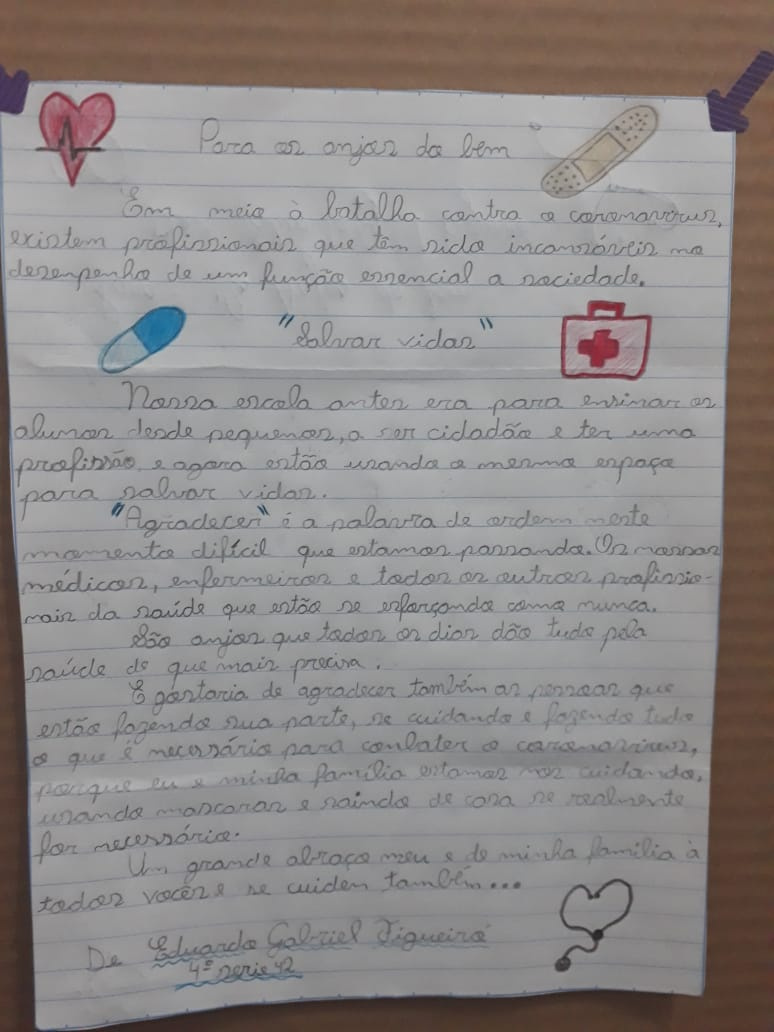 Para os anjos do bem
Em meio à batalha contra o coronavírus,
existem profissionais que têm sido incansáveis no
desenpenho de um função essencial a sociedade.
"Salvar vidas"
Nossa escola antes era para ensinar os
alunos desde pequenos, a ser cidadão e ter uma
profissão, e agora estão usando o mesmo espaço
para salvar vidas.
"Agradecer" é a palavra de ordem neste
momento difícil que estamos passando. Os nossos
médicos, enfermeiros e todos os outros profissio-
nais da saúde que estão se esforçando como nunca.
São anjos que todos os dias dão tudo pela
saúde do que mais precisa.
E gostaria de agradecer também as pessoas que
estão fazendo sua parte, se cuidando e fazendo tudo
o que é necessário para conbater o coronavírus,
porque eu e minha família estamos nos cuidando,
usando mascaras e saindo de casa se realmente
for necessário.
Um grande abraço meu e de minha família à
todos vocês e se cuidem também...
De Eduardo Gabriel Figueiró
4º serie 42